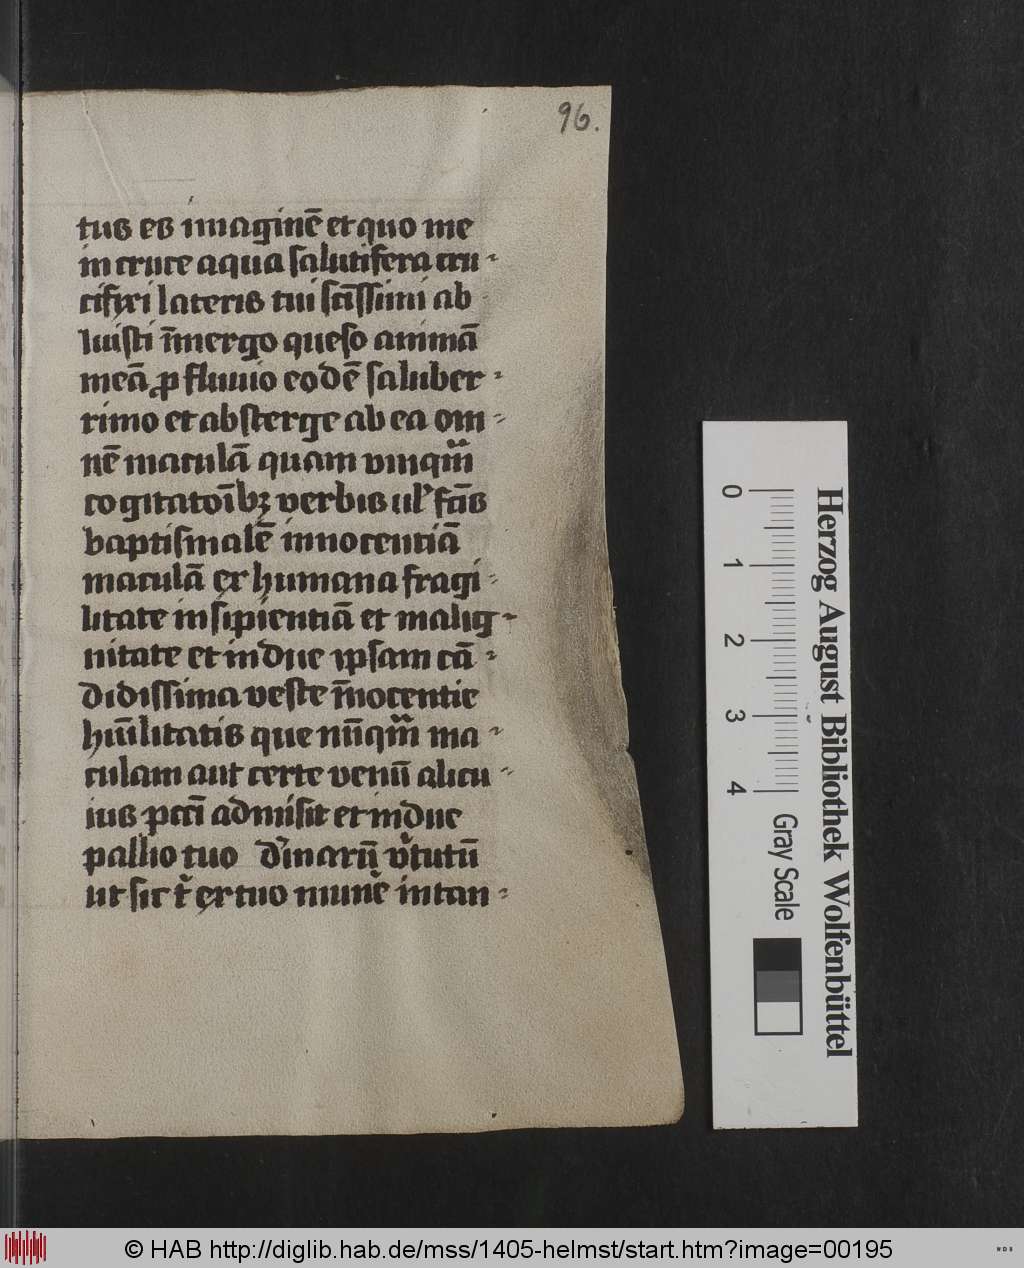 96.
tus es imaginē et quo me
in cruce aqua salutifera cru-
cifixi lateris tui sc̄issimi ab
luisti īmergo queso animā
meā pro fluuio eodē saluber-
rimo et absterge ab ea om-
nē maculā quam vnqm̄
cogitatoībꝫ verbis ul' fc̄is
baptismalē innocentiā
maculā ex humana fragi-
litate insipientiā et malig-
nitate et indue ipsam cā-
didissima veste īnocentie
hūilitatis que nūqm̄ ma-
culam aut certe venū alicu-
ius pcc̄i admisit et indue
pallio tuo d'inarū v'tutū
ut sic t' ex tuo mun'e intan-
Herzog August Bibliothek Wolfenbüttel
0 1 2 3 4 Gray Scale
© HAB http://diglib.hab.de/mss/1405-helmst/start.htm?image=00195